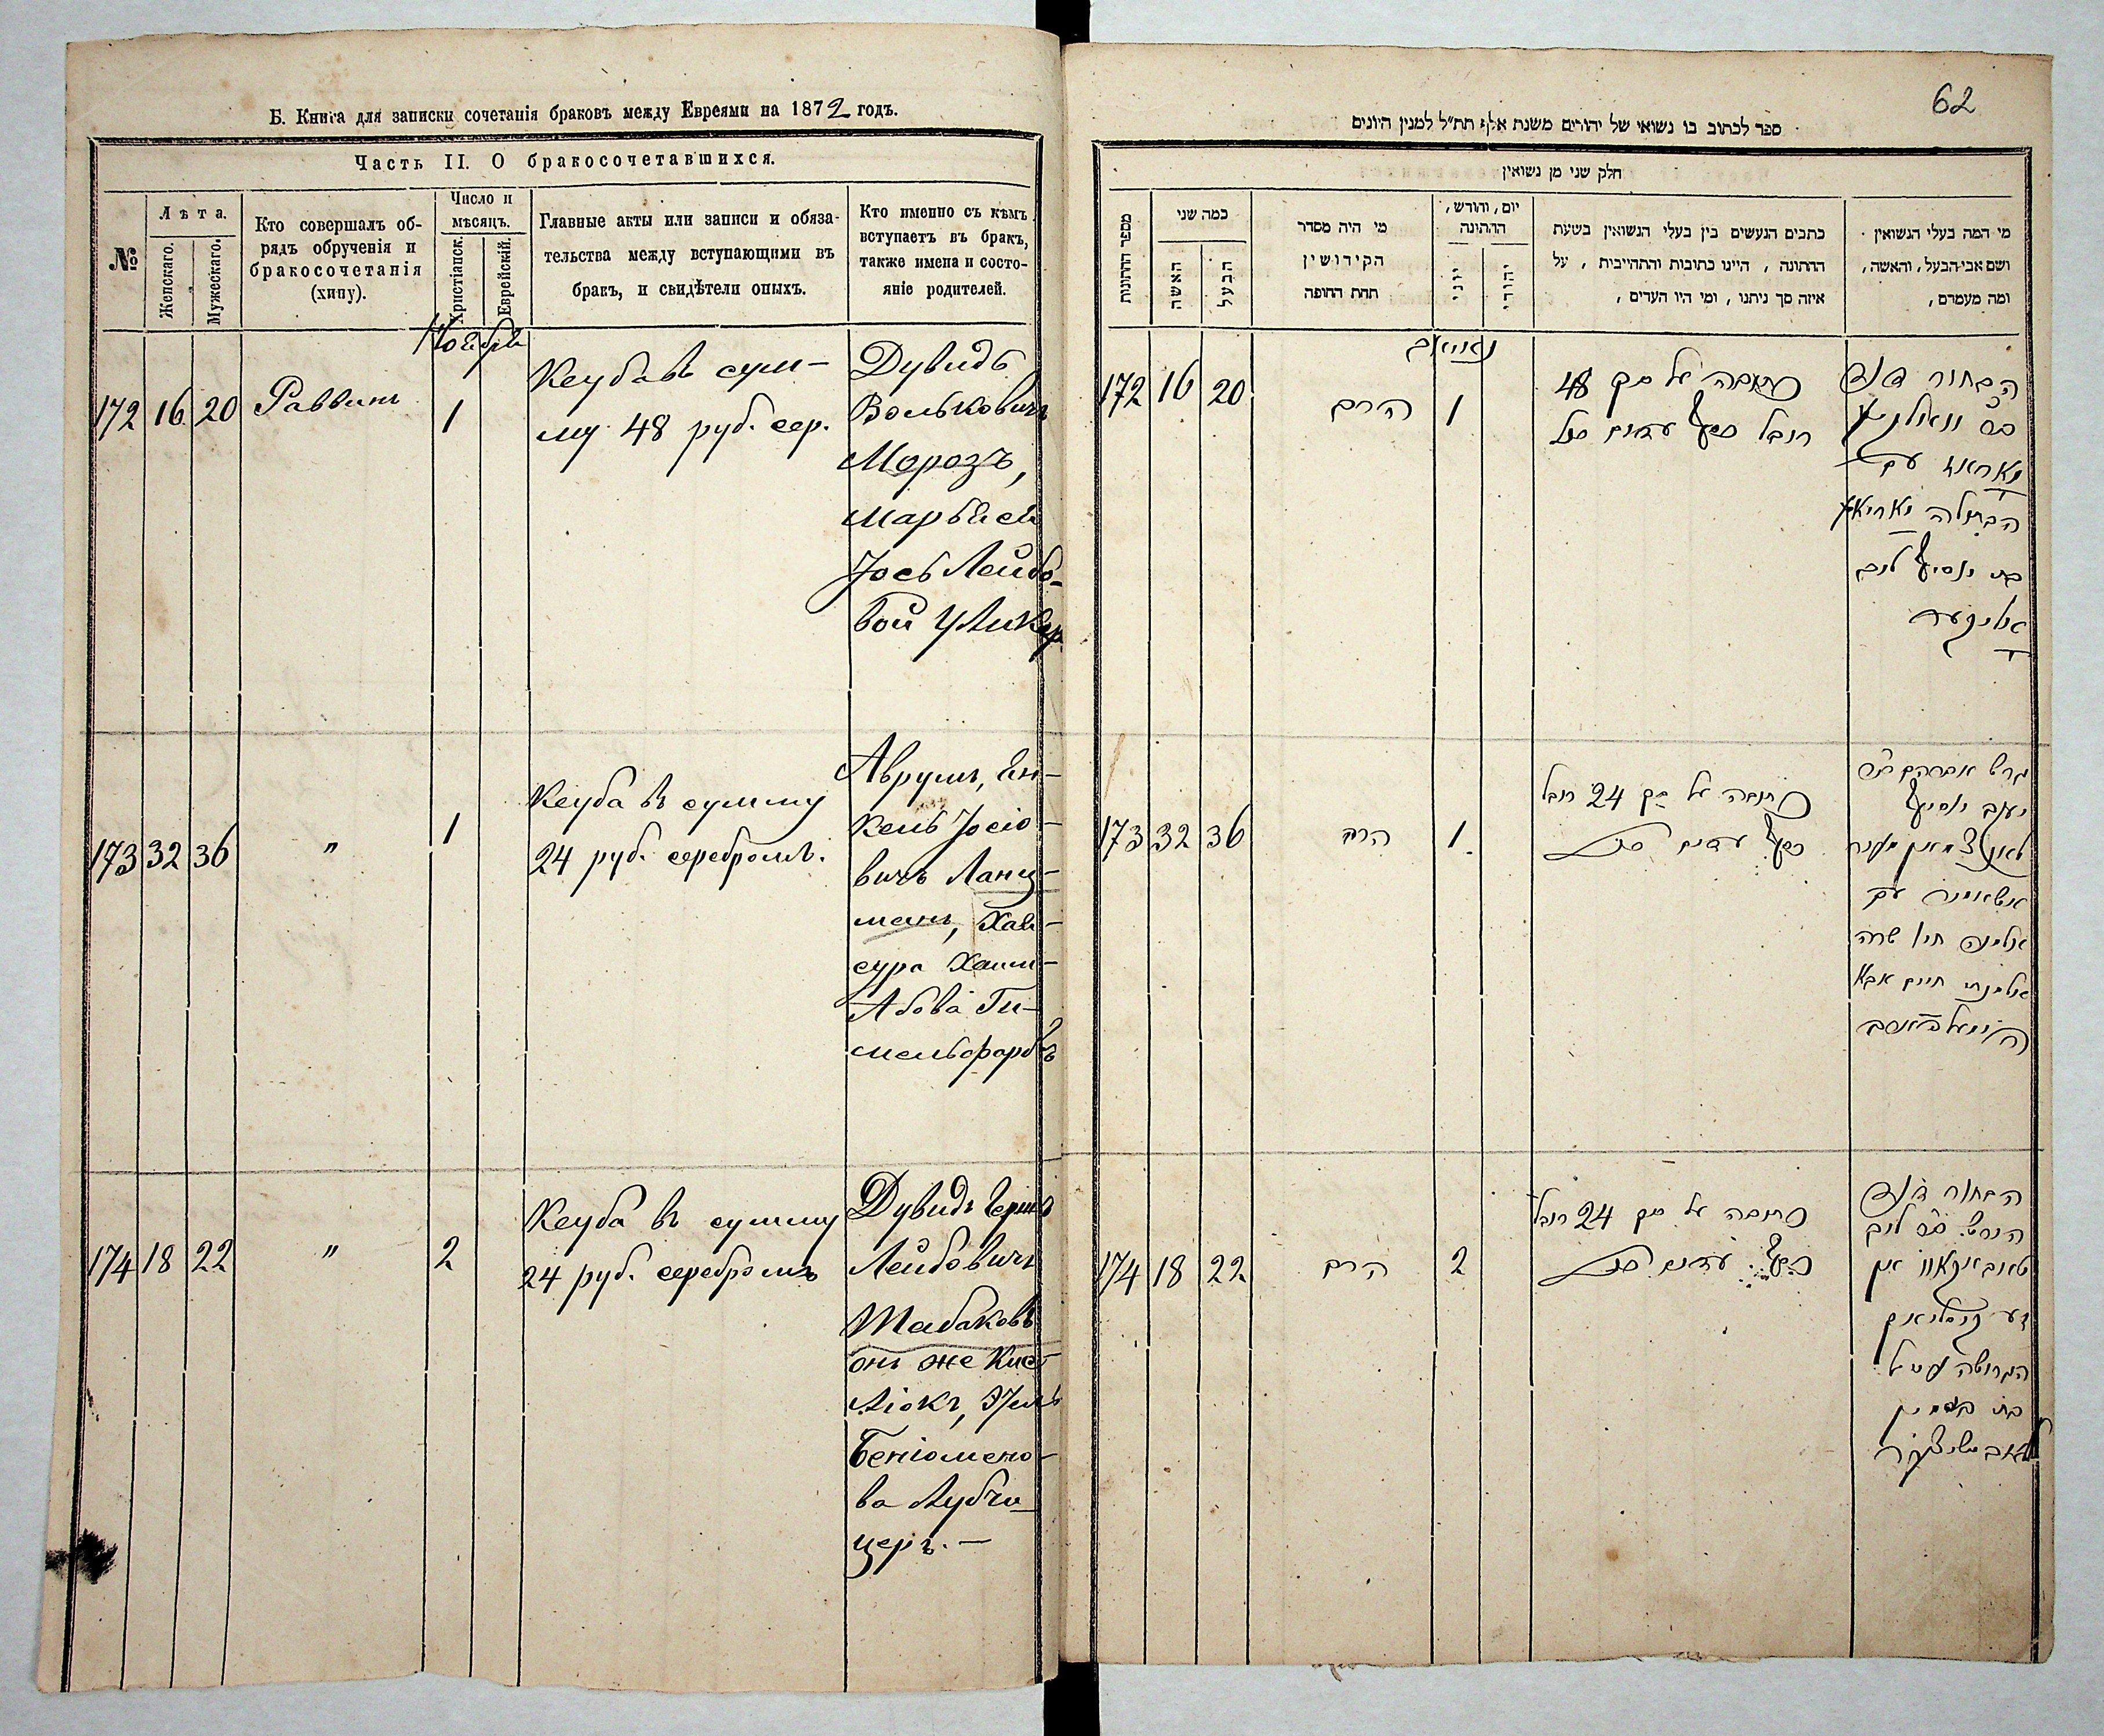 Б. Книга для записки сочетанія браковъ между Евреями на 1872 годъ.
Часть II. О бракосочетавшихся.
№
Лѣта.
Женскаго.
Мужескаго.
Кто совершалъ об-
рядъ обрученія и
бракосочетанія
(хипу).
Число и
мѣсяцъ.
Христіанск.
Еврейскій.
Главные акты или записи и обяза-
тельства между вступающими въ
бракъ, и свидѣтели оныхъ.
Кто именно съ кѣмъ
вступаетъ въ бракъ,
также имена и состо-
яніе родителей.
Ноября
172 16 20 Раввинъ 1
Кеуба въ сум-
му 48 руб. сер.
Дувидъ
Вольковичъ
Морозъ,
Марьѣсей
Іось Лейбо-
вой Уликер
173 32 36 " 1
Кеуба въ сумму
24 руб. серебромъ.
Аврумъ, Ян-
кель Іосіо-
вичъ Ланц-
манъ, Хая-
сура Хаим-
Абова Ги-
мельфарбъ
174 18 22 " 2
Кеуба въ сумму
24 руб. серебромъ
Дувидъ Герш
Лейбовичъ
Табаковъ
онъ же Кис-
ліокъ,
Беніомено-
ва Лубчи-
церъ. -
62
ספר לכתוב בו נשואי של יהודים משנת אלף תת״ל למנין היונים
חלק שני מן נשואין
מספר החתונות
כמה שני
האשה
הבעל
מי היה מסדר
הקידושין
תחת החופה
יום, וחודש,
החתונה
יוני
יהודי
כתבים הנעשים בין בעלי הנשואין בשעת
החתונה, היינו כתובות והתחייבית, על
איזה סך ניתנו, ומי היו העדים,
מי המה בעלי הנשואין
ושם אבי־הבעל, והאשה,
ומה מעמדם,
172 16 20 הרב 1
כתובה על סך 48
רובל כסף עדים
הבחור דוד
מאראז עם
הבתולה
בת יוסף ליב
אוליקער
173 32 36 הרב 1
כתובה על סך 24 רובל
כסף עדים
אברהם
יעקב יוסף
עם
חיה שרה
חיים אבא
174 18 22 הרב 2
כתובה על סך 24 רובל
כסף עדים
הבחור דוד
הירש ליב
הגרושה
בת בנימין